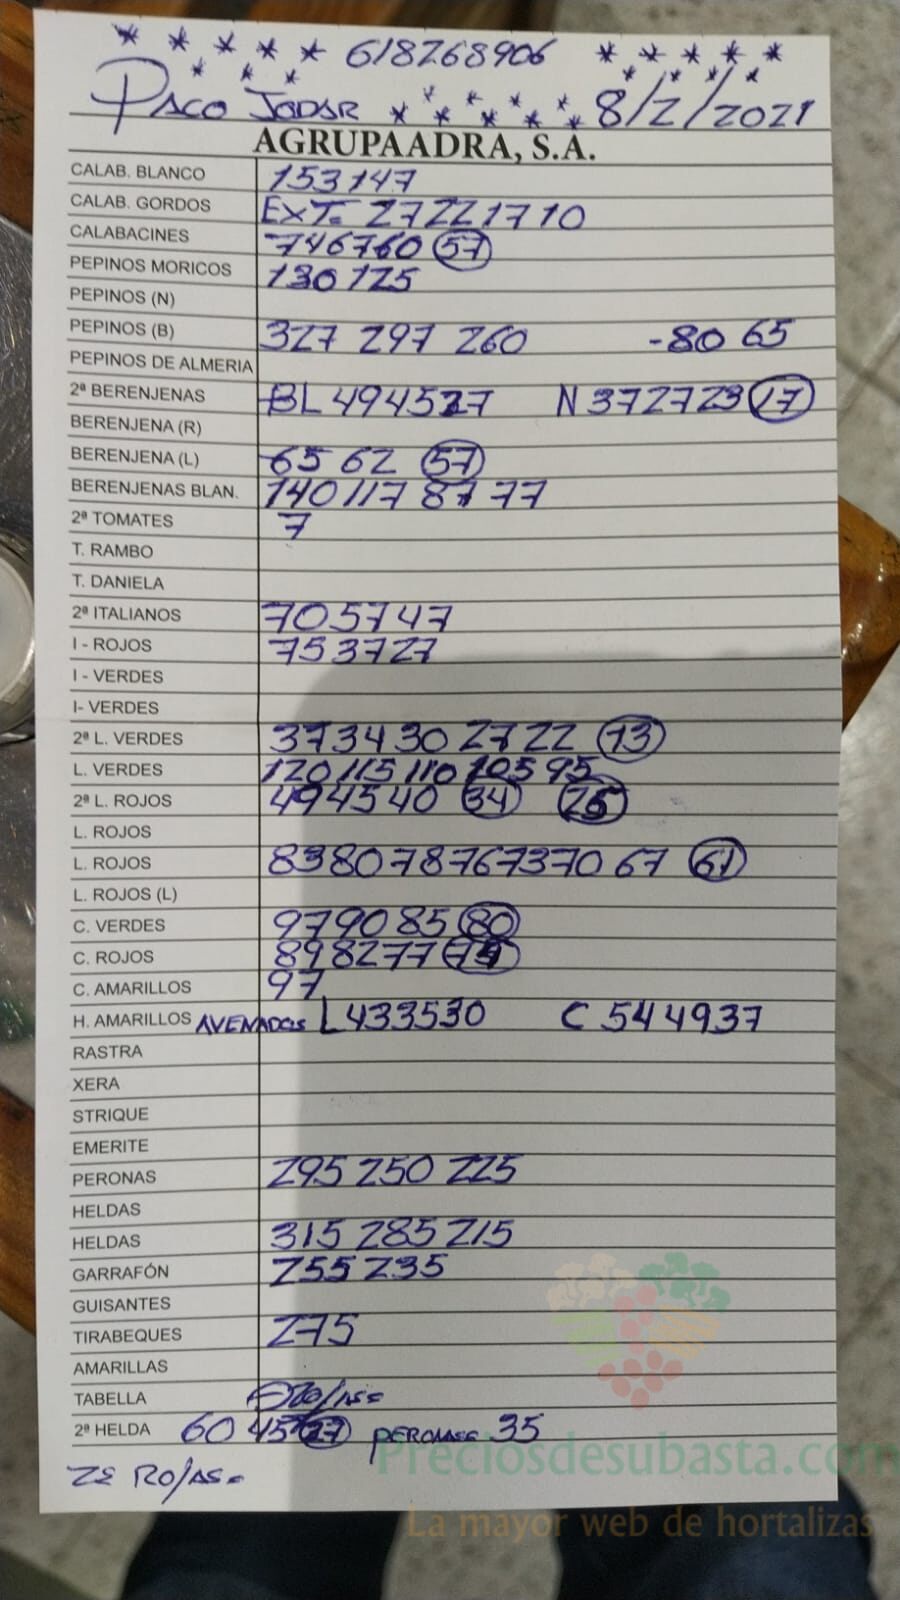 618268906
PACO JODAR 8/2/2021
AGRUPAADRA, S.A.
CALAB. BLANCO 153 147
CALAB. GORDOS EXT. 27 22 17 10
CALABACINES 74 67 60 57
PEPINOS MORICOS 130 125
PEPINOS (N)
PEPINOS (B) 327 297 260 -80 65
PEPINOS DE ALMERIA
2ª BERENJENAS BL 49 45 27 N 37 27 23 17
BERENJENA (R)
BERENJENA (L) 65 62 57
BERENJENAS BLAN. 140 117 87 77
2ª TOMATES 7
T. RAMBO
T. DANIELA
2ª ITALIANOS 70 57 47
I - ROJOS 75 37 27
I - VERDES
I- VERDES
2ª L. VERDES 37 34 30 27 22 13
L. VERDES 120 115 110 105 95
2ª L. ROJOS 49 45 40 34
L. ROJOS
L. ROJOS 83 80 78 76 73 70 67 61
L. ROJOS (L)
C. VERDES 97 90 85 80
C. ROJOS 89 82 77
C. AMARILLOS 97
H. AMARILLOS AVENADOS L 43 35 30 C 54 49 37
RASTRA
XERA
STRIQUE
EMERITE
PERONAS 295 250 225
HELDAS
HELDAS 315 285 215
GARRAFÓN 255 235
GUISANTES
TIRABEQUES 275
AMARILLAS
TABELLA
2ª HELDA 60 45 27 PERONAS 35
ROJAS
Preciosdesubasta.com
La mayor web de hortalizas